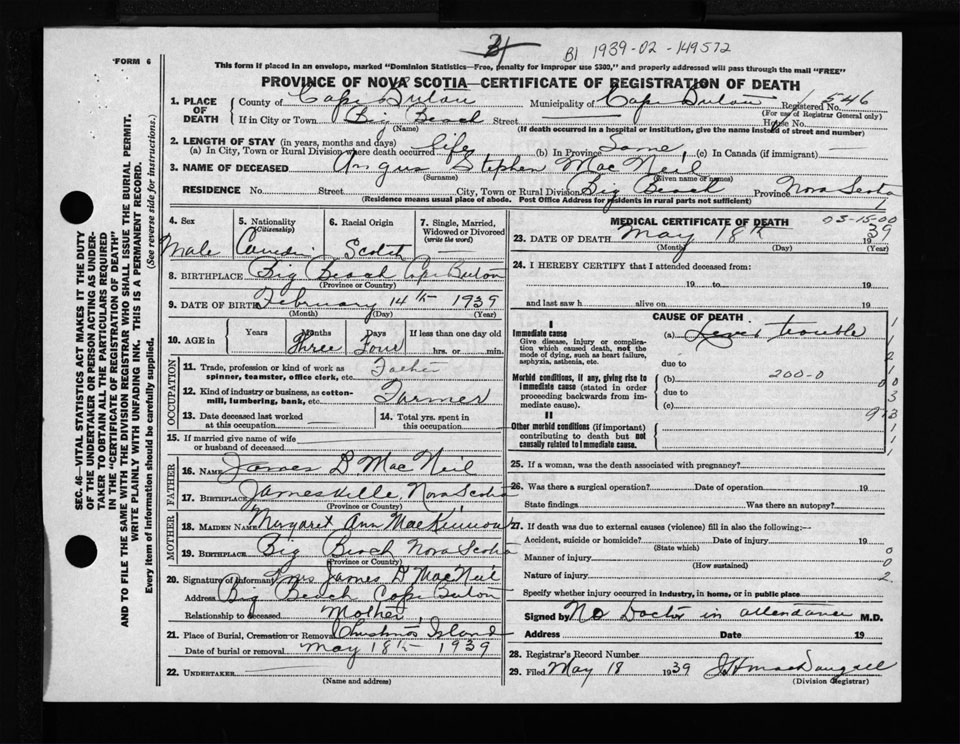 FORM 6
B1 1939-02-149572
This form if placed in an envelope, marked "Dominion Statistics—Free, penalty for improper use $300," and properly addressed will pass through the mail "FREE"
PROVINCE OF NOVA SCOTIA—CERTIFICATE OF REGISTRATION OF DEATH
1. PLACE OF DEATH County of Cape Breton Municipality of Cape Breton Registered No. 1546
(For use of Registrar General only)
If in City or Town Big Beach Street House No.
(Name) (If death occurred in a hospital or institution, give the name instead of street and number)
2. LENGTH OF STAY (in years, months and days)
(a) In City, Town or Rural Division where death occurred Life (b) In Province Same (c) In Canada (if immigrant)
3. NAME OF DECEASED Angus Stephen MacNeil
(Surname) (Given name or names)
RESIDENCE No. Street City, Town or Rural Division Big Beach Province Nova Scotia
(Residence means usual place of abode. Post Office Address for residents in rural parts not sufficient)
4. Sex 5. Nationality (Citizenship) 6. Racial Origin 7. Single, Married, Widowed or Divorced (write the word)
Male Canadi Scotch
8. BIRTHPLACE Big Beach Cape Breton
(Province or Country)
9. DATE OF BIRTH February 14th 1939
(Month) (Day) (Year)
10. AGE in Years Months Days If less than one day old
Three Four hrs. or min.
OCCUPATION
11. Trade, profession or kind of work as spinner, teamster, office clerk, etc. Father
12. Kind of industry or business, as cotton-mill, lumbering, bank, etc. Farmer
13. Date deceased last worked at this occupation 14. Total yrs. spent in this occupation
15. If married give name of wife or husband of deceased
FATHER
16. NAME James D MacNeil
17. BIRTHPLACE Jamesville, Nova Scotia
(Province or Country)
MOTHER
18. MAIDEN NAME Margaret Ann MacKinnon
19. BIRTHPLACE Big Beach Nova Scotia
(Province or Country)
20. Signature of Informant Mrs James D MacNeil
Address Big Beach Cape Breton
Relationship to deceased Mother
21. Place of Burial, Cremation or Removal Christmas Island
Date of burial or removal May 18th 1939
22. UNDERTAKER
(Name and address)
MEDICAL CERTIFICATE OF DEATH
03-15-00
23. DATE OF DEATH May 18th 1939
(Month) (Day) (Year)
24. I HEREBY CERTIFY that I attended deceased from:
19 to 19
and last saw h alive on 19
CAUSE OF DEATH
I
Immediate cause (a) trouble
Give disease, injury or complication which caused death, not the mode of dying, such as heart failure, asphyxia, asthenia, etc.
due to
Morbid conditions, if any, giving rise to immediate cause (stated in order proceeding backwards from immediate cause) (b) 200-0
due to
(c)
II
Other morbid conditions (if important) contributing to death but not causally related to Immediate cause.
25. If a woman, was the death associated with pregnancy?
26. Was there a surgical operation? Date of operation 19
State findings Was there an autopsy?
27. If death was due to external causes (violence) fill in also the following:—
Accident, suicide or homicide? Date of injury 19
(State which)
Manner of injury
(How sustained)
Nature of injury
Specify whether injury occurred in industry, in home, or in public place
Signed by No Doctor in attendance M.D.
Address Date 19
28. Registrar's Record Number
29. Filed May 18 1939 J H MacDougall
(Division Registrar)
SEC. 46—VITAL STATISTICS ACT MAKES IT THE DUTY
OF THE UNDERTAKER OR PERSON ACTING AS UNDER-
TAKER TO OBTAIN ALL THE PARTICULARS REQUIRED
IN THE "CERTIFICATE OF REGISTRATION OF DEATH"
AND TO FILE THE SAME WITH THE DIVISION REGISTRAR WHO SHALL ISSUE THE BURIAL PERMIT.
WRITE PLAINLY WITH UNFADING INK. THIS IS A PERMANENT RECORD.
Every item of information should be carefully supplied. (See reverse side for instructions.)